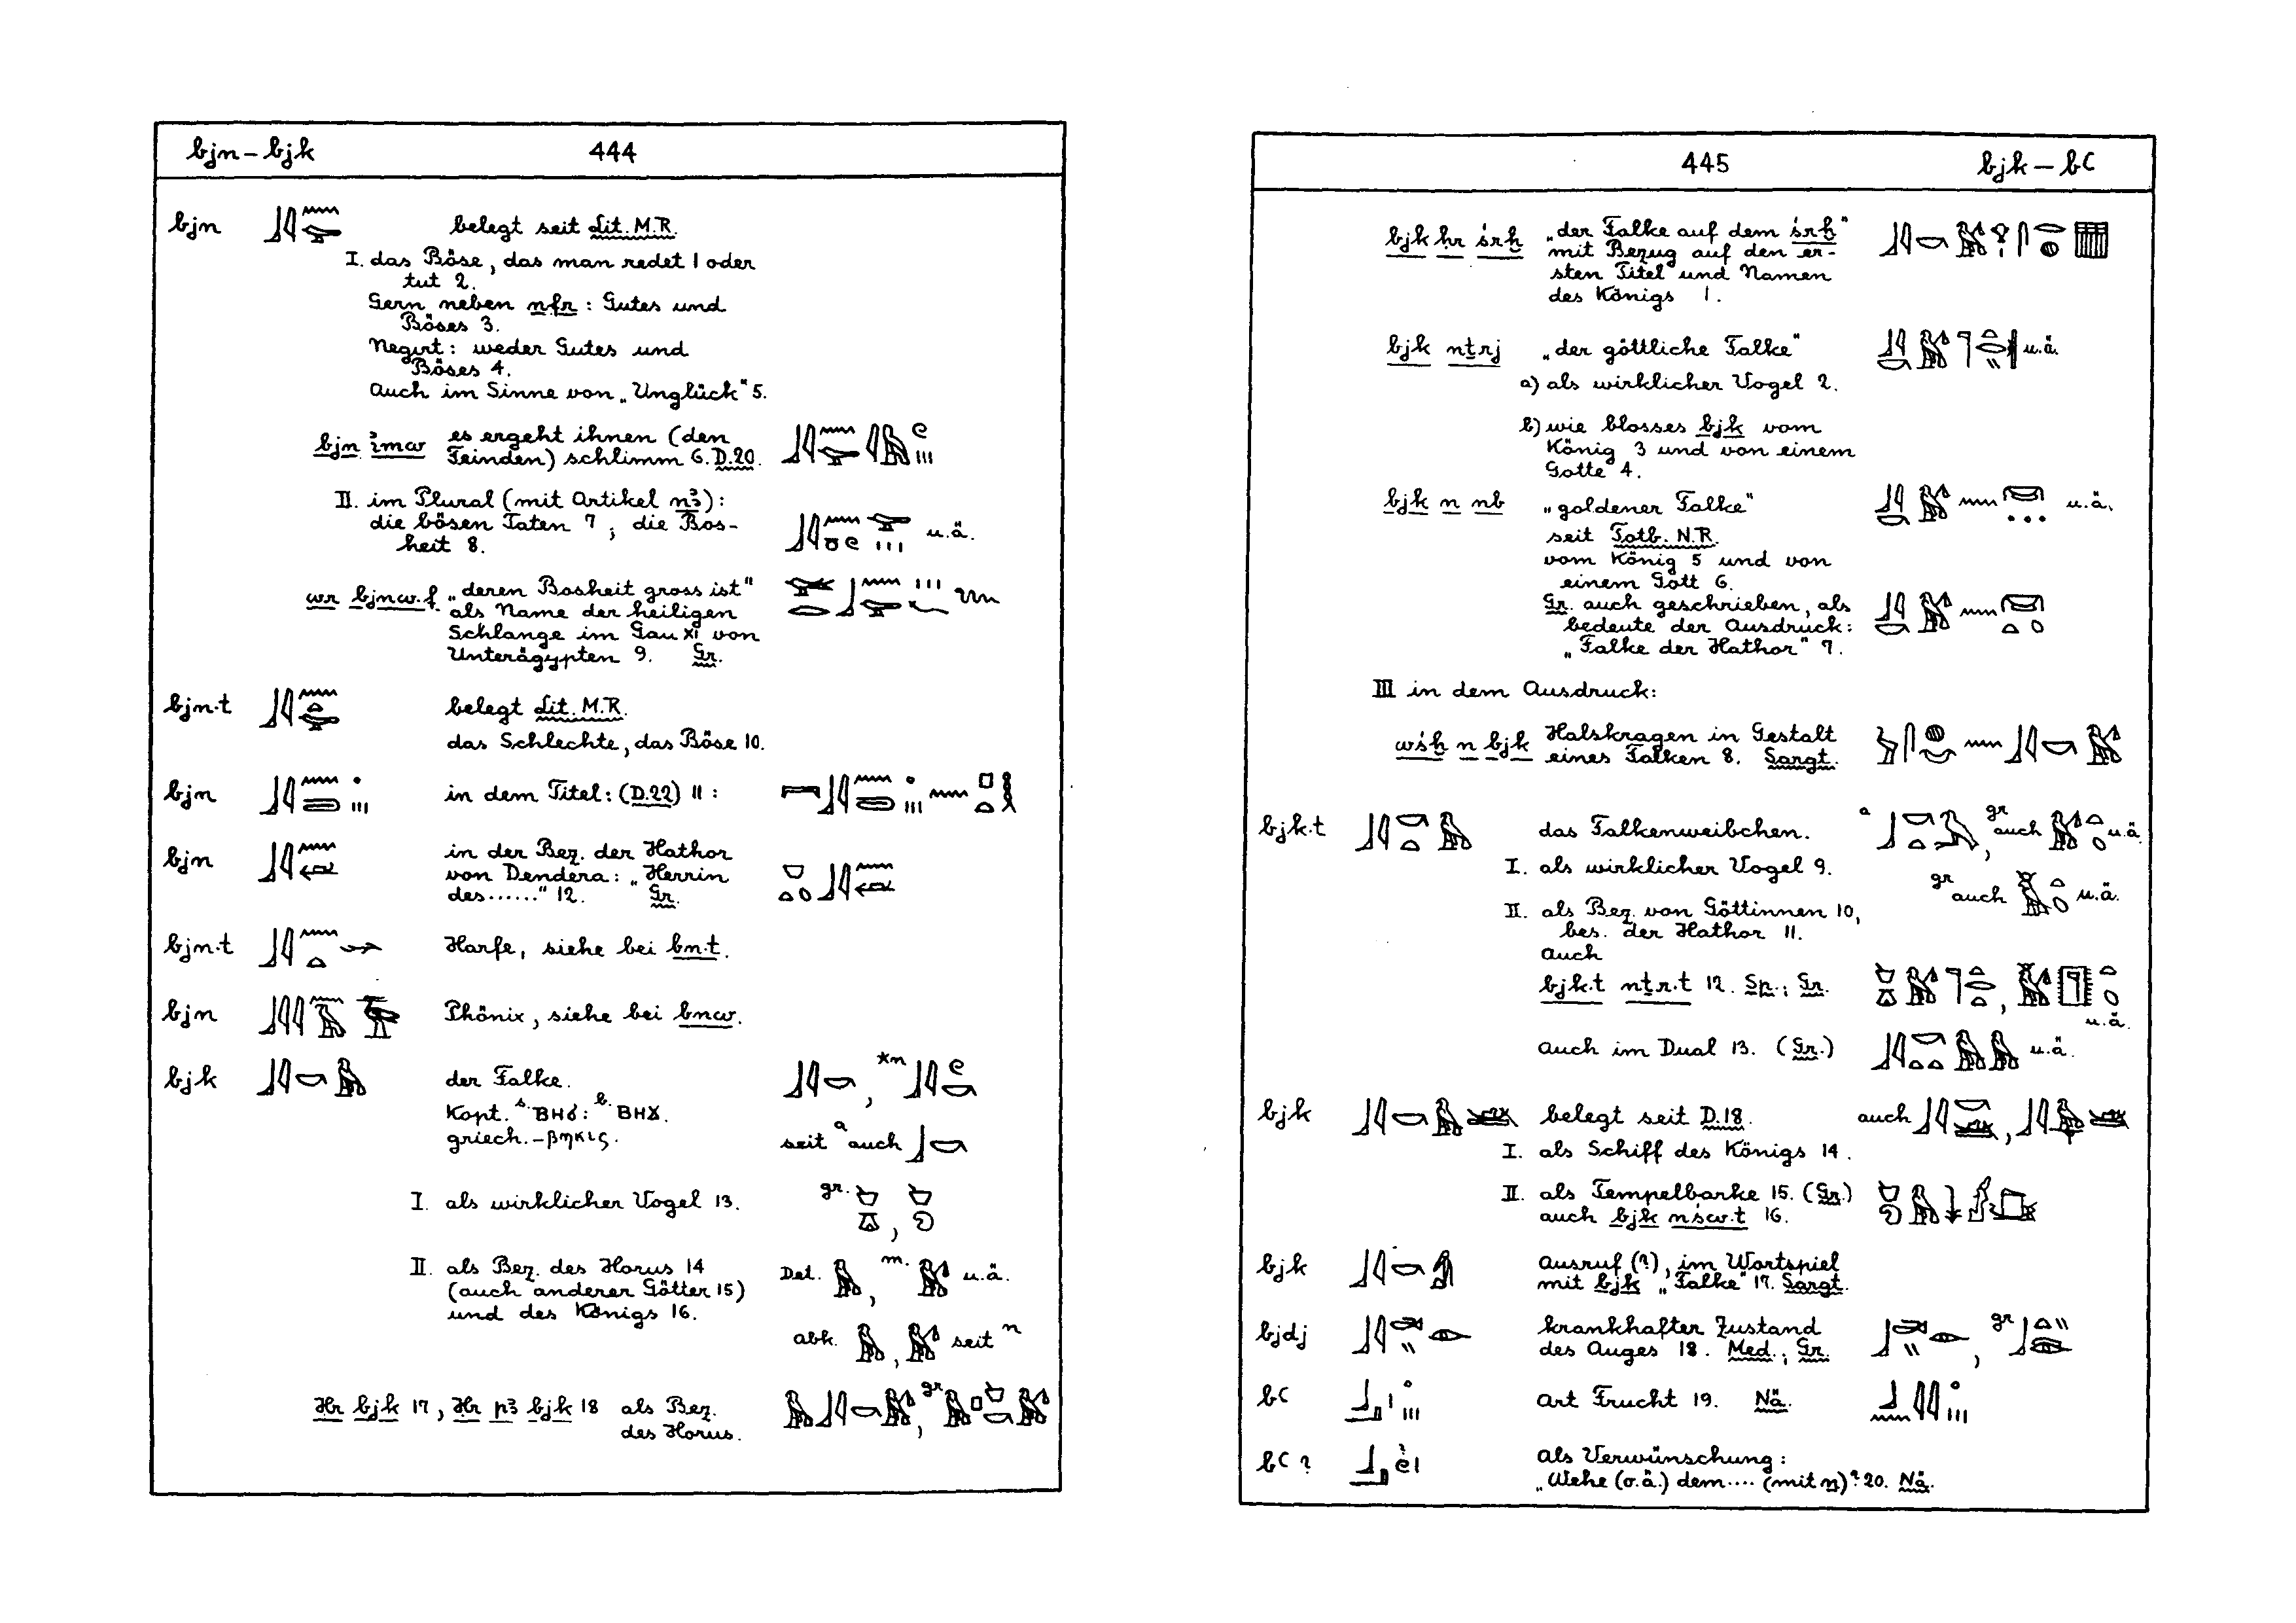 bjn – bjk 444
bjn belegt seit Lit. M.R.
I. das Böse, das man redet 1 oder
tut 2.
Gern neben nfr: Gutes und
Böses 3.
Negirt: weder Gutes und
Böses 4.
Auch im Sinne von „Unglück" 5.
bjn ꞽmw es ergeht ihnen (den
Feinden) schlimm 6. D.20.
II. im Plural (mit Artikel nꜣ):
die bösen Taten 7; die Bos-
heit 8. u.ä.
wr bjnw.f „deren Bosheit gross ist"
als Name der heiligen
Schlange im Gau XI von
Unterägypten 9. Gr.
bjn.t belegt Lit. M.R.
das Schlechte, das Böse 10.
bjn in dem Titel: (D.22) 11:
bjn in der Bez. der Hathor
von Dendera: „Herrin
des......" 12. Gr.
bjn.t Harfe, siehe bei bn.t.
bjn Phönix, siehe bei bnw.
bjk der Falke.
Kopt. s. ⲃⲏϭ: b. ⲃⲏϫ.
griech. –βηκις.
seit a auch
I. als wirklicher Vogel 13. gr.
II. als Bez. des Horus 14 Det. m. u.ä.
(auch anderer Götter 15)
und des Königs 16.
abk. seit n
Ḥr bjk 17, Ḥr pꜣ bjk 18 als Bez. gr
des Horus.
445 bjk – bꜥ
bjk ḥr śrḫ „der Falke auf dem śrḫ"
mit Bezug auf den er-
sten Titel und Namen
des Königs 1.
bjk nṯrj „der göttliche Falke" u.ä.
a) als wirklicher Vogel 2.
b) wie blosses bjk vom
König 3 und von einem
Gotte 4.
bjk n nb „goldener Falke" u.ä.
seit Totb. N.R.
vom König 5 und von
einem Gott 6.
Gr. auch geschrieben, als
bedeute der Ausdruck:
„Falke der Hathor" 7.
III in dem Ausdruck:
wśḫ n bjk Halskragen in Gestalt
eines Falken 8. Sargt.
bjk.t das Falkenweibchen. a gr auch u.ä.
I. als wirklicher Vogel 9.
gr auch u.ä.
II. als Bez. von Göttinnen 10,
bes. der Hathor 11.
Auch
bjk.t nṯr.t 12. Sp.; Gr.
u.ä.
auch im Dual 13. (Gr.) u.ä.
bjk belegt seit D.18. auch
I. als Schiff des Königs 14.
II. als Tempelbarke 15. (Gr.)
auch bjk nśw.t 16.
bjk Ausruf (?), im Wortspiel
mit bjk „Falke" 17. Sargt.
bjdj krankhafter Zustand gr
des Auges 18. Med.; Gr.
bꜥ Art Frucht 19. Nä.
bꜥ? als Verwünschung:
„Wehe (o.ä.) dem.... (mit n)? 20. Nä.